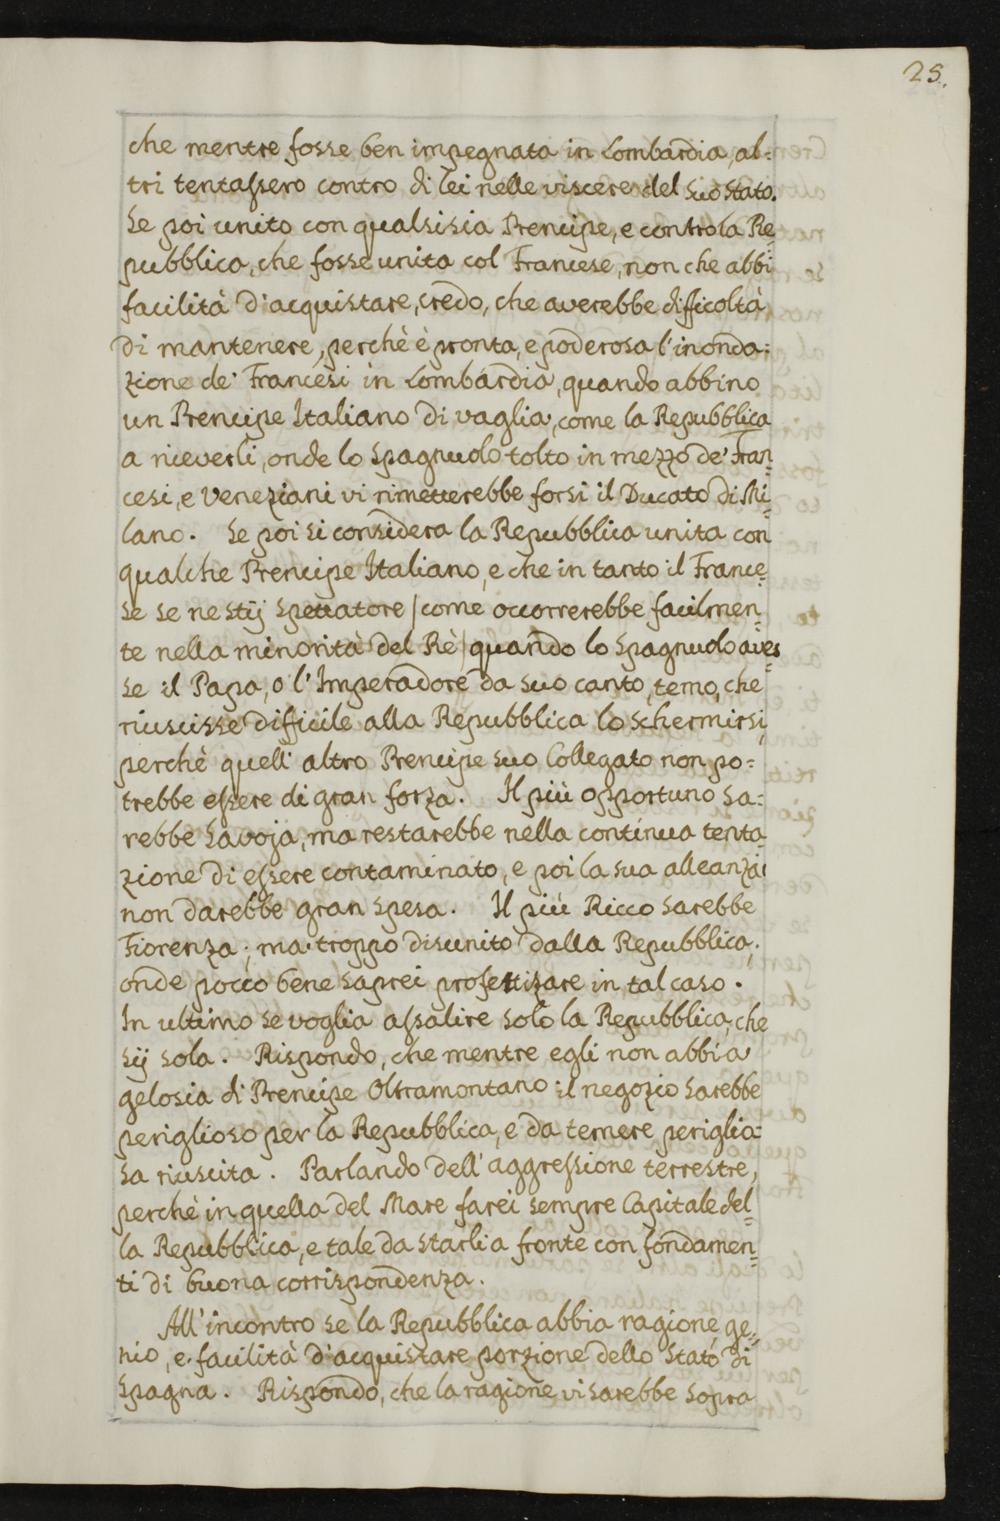 25.
che mentre fosse ben impegnata in Lombardia, al:
tri tentassero contro di lei nelle viscere del suo stato.
Se poi unito con qualsisia Prencipe, e contro la Re=
pubblica, che fosse unita col Francese, non che abbi
facilità d'acquistare, credo, che averebbe difficoltà
di mantenere, perchè è pronta, e poderosa l'inonda:
zione de' Francesi in Lombardia, quando abbino
un Prencipe Italiano di vaglia, come la Repubblica
a riceverli, onde lo Spagnuolo tolto in mezzo de' Fran=
cesi, e Veneziani vi rimetterebbe forsi il Ducato di Mi=
lano. Se poi si considera la Repubblica unita con
qualche Prencipe Italiano, e che in tanto il France=
se se ne stij spettatore / come occorrerebbe facilmen=
te nella minorità del Rè / quando lo Spagnuolo aves=
se il Papa, o l'Imperadore da suo canto, temo, che
riuscisse difficile alla Repubblica lo schermirsi,
perchè quell' altro Prencipe suo Collegato non po=
trebbe essere di gran forza. Il più opportuno sa:
rebbe Savoja, ma restarebbe nella continua tenta=
zione di essere contaminato, e poi la sua alleanza
non darebbe gran spesa. Il più Ricco sarebbe
Fiorenza; ma troppo disunito dalla Repubblica;
onde pocco bene saprei profettizare in tal caso.
In ultimo se voglia assalire solo la Repubblica, che
sij sola. Rispondo, che mentre egli non abbia
gelosia di Prencipe Oltramontano il negozio sarebbe
periglioso per la Repubblica, e da temere periglio:
sa riuscita. Parlando dell' aggressione terrestre,
perchè in quella del Mare farei sempre Capitale del=
la Repubblica, e tale da starli a fronte con fondamen=
ti di buona corrispondenza.
All'incontro se la Repubblica abbia ragione, ge=
nio, e facilità d'acquistare porzione dello Stato di
Spagna. Rispondo, che la ragione vi sarebbe sopra